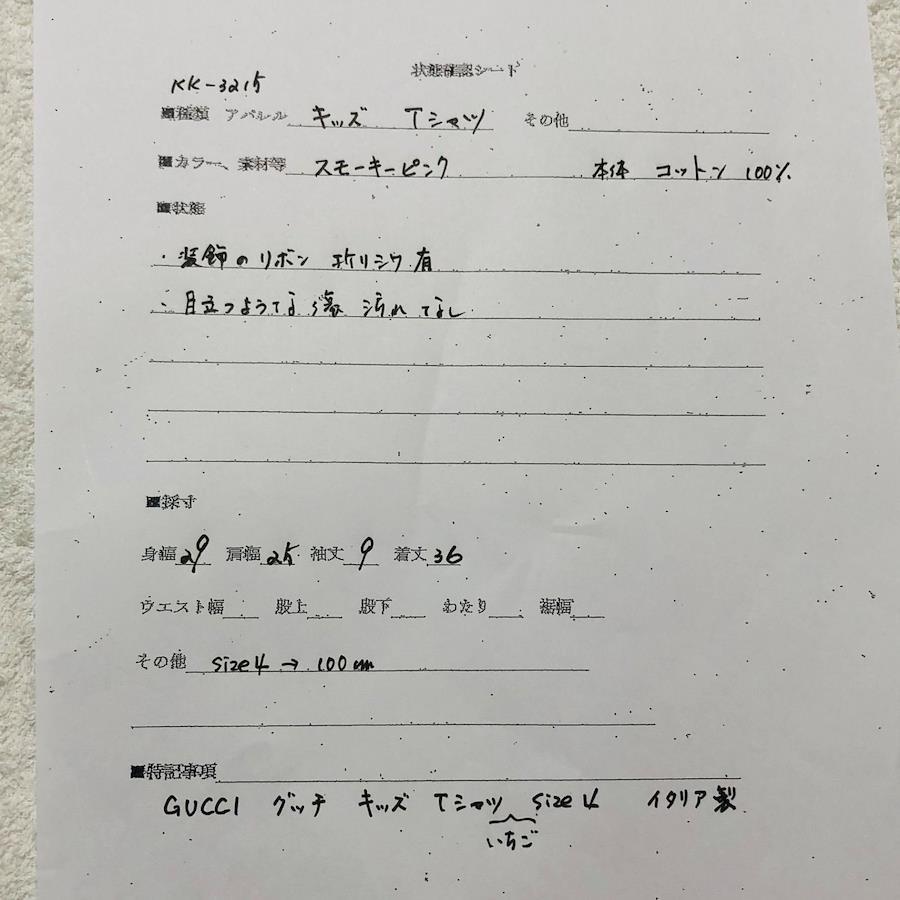 状態確認シート
KK-3215
■種類 アパレル キッズ Tシャツ その他
■カラー、素材等 スモーキーピンク 本体 コットン 100%
■状態
・装飾のリボン 折りジワ有
・目立つような傷 汚れ なし
■採寸
身幅29 肩幅25 袖丈9 着丈36
ウエスト幅 股上 股下 わたり 裾幅
その他 size4 → 100cm
■特記事項
GUCCI グッチ キッズ Tシャツ size4 イタリア製
いちご